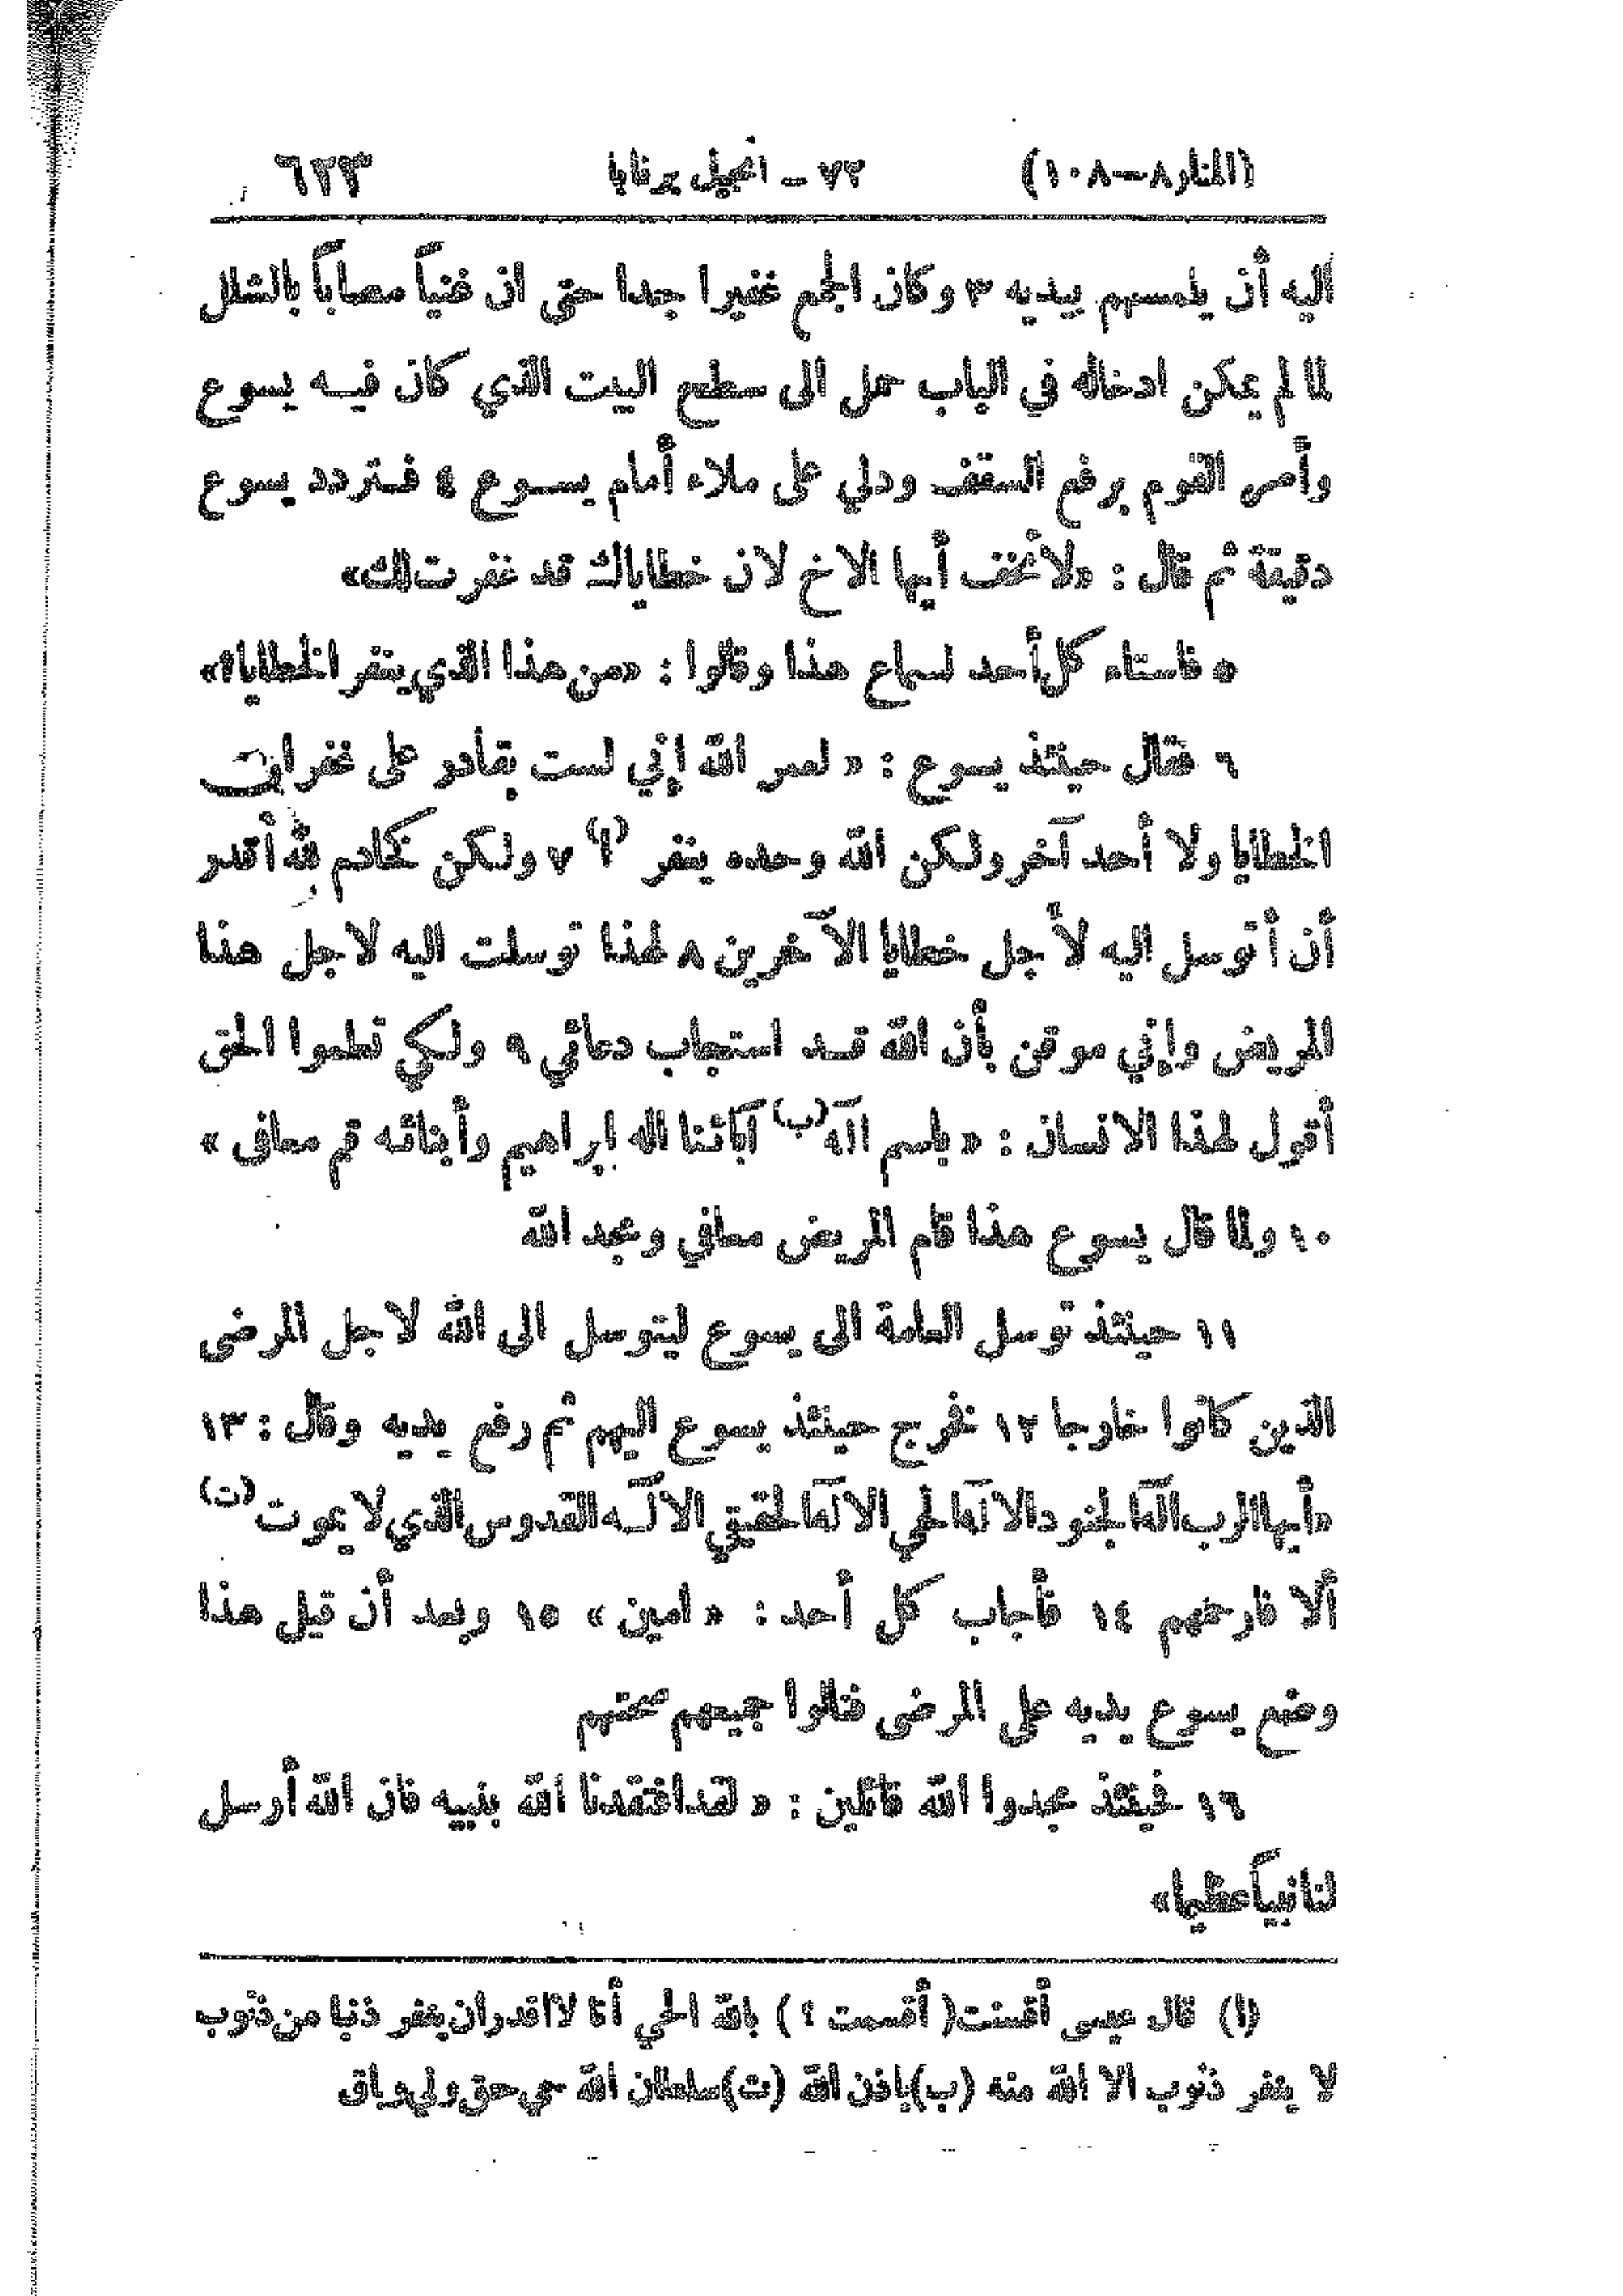 (المنار ٨ — ١٠٨) ٧٢ — انجيل برنابا ٦٢٣
اليه أن يلمسهم بيديه ٣ وكان الجمع غفيرا جدا حتى ان غنياً مصاباً بالشلل
لما لم يمكن ادخاله في الباب حمل الى سطح البيت الذي كان فيه يسوع
وأمر القوم برفع السقف ودلي على ملاء أمام يسوع ٤ فتردد يسوع
دقيقة ثم قال : «لا تخف أيها الاخ لان خطاياك قد غفرت لك»
٥ فاستاء كل أحد لسماع هذا وقالوا : «من هذا الذي يغفر الخطايا؟»
٦ فقال حينئذ يسوع : « لعمر الله إني لست بقادر على غفران
الخطايا ولا أحد آخر ولكن الله وحده يغفر (ا) ٧ ولكن كخادم لله أقدر
أن أتوسل اليه لأجل خطايا الآخرين ٨ لهذا توسلت اليه لاجل هذا
المريض وإني موقن بأن الله قد استجاب دعائي ٩ ولكي تعلموا الحق
أقول لهذا الانسان : « باسم آله (ب) آبائنا اله ابراهيم وأبنائه قم معافى »
١٠ ولما قال يسوع هذا قام المريض معافى ومجد الله
١١ حينئذ توسل العامة الى يسوع ليتوسل الى الله لاجل المرضى
الذين كانوا خارجا ١٢ فخرج حينئذ يسوع اليهم ثم رفع يديه وقال : ١٣
«أيها الرب آله الجنود الآله الحي الآله الحقيقي الآله القدوس الذي لا يموت (ت)
ألا فارحمهم ١٤ فأجاب كل أحد : « امين » ١٥ وبعد أن قيل هذا
وضع يسوع يديه على المرضى فنالوا جميعهم صحتهم
١٦ فحينئذ مجدوا الله قائلين : « لقد افتقدنا الله بنبيه فان الله أرسل
لنا نبياً عظيما»
(ا) قال عيسى أقسنت (أقسمت ؟) بالله الحي أنا لا اقدر ان يغفر ذنبا من ذنوب
لا يغفر ذنوب الا الله منه (ب) باذن الله (ت) سلطان الله حي حق ولي و باق